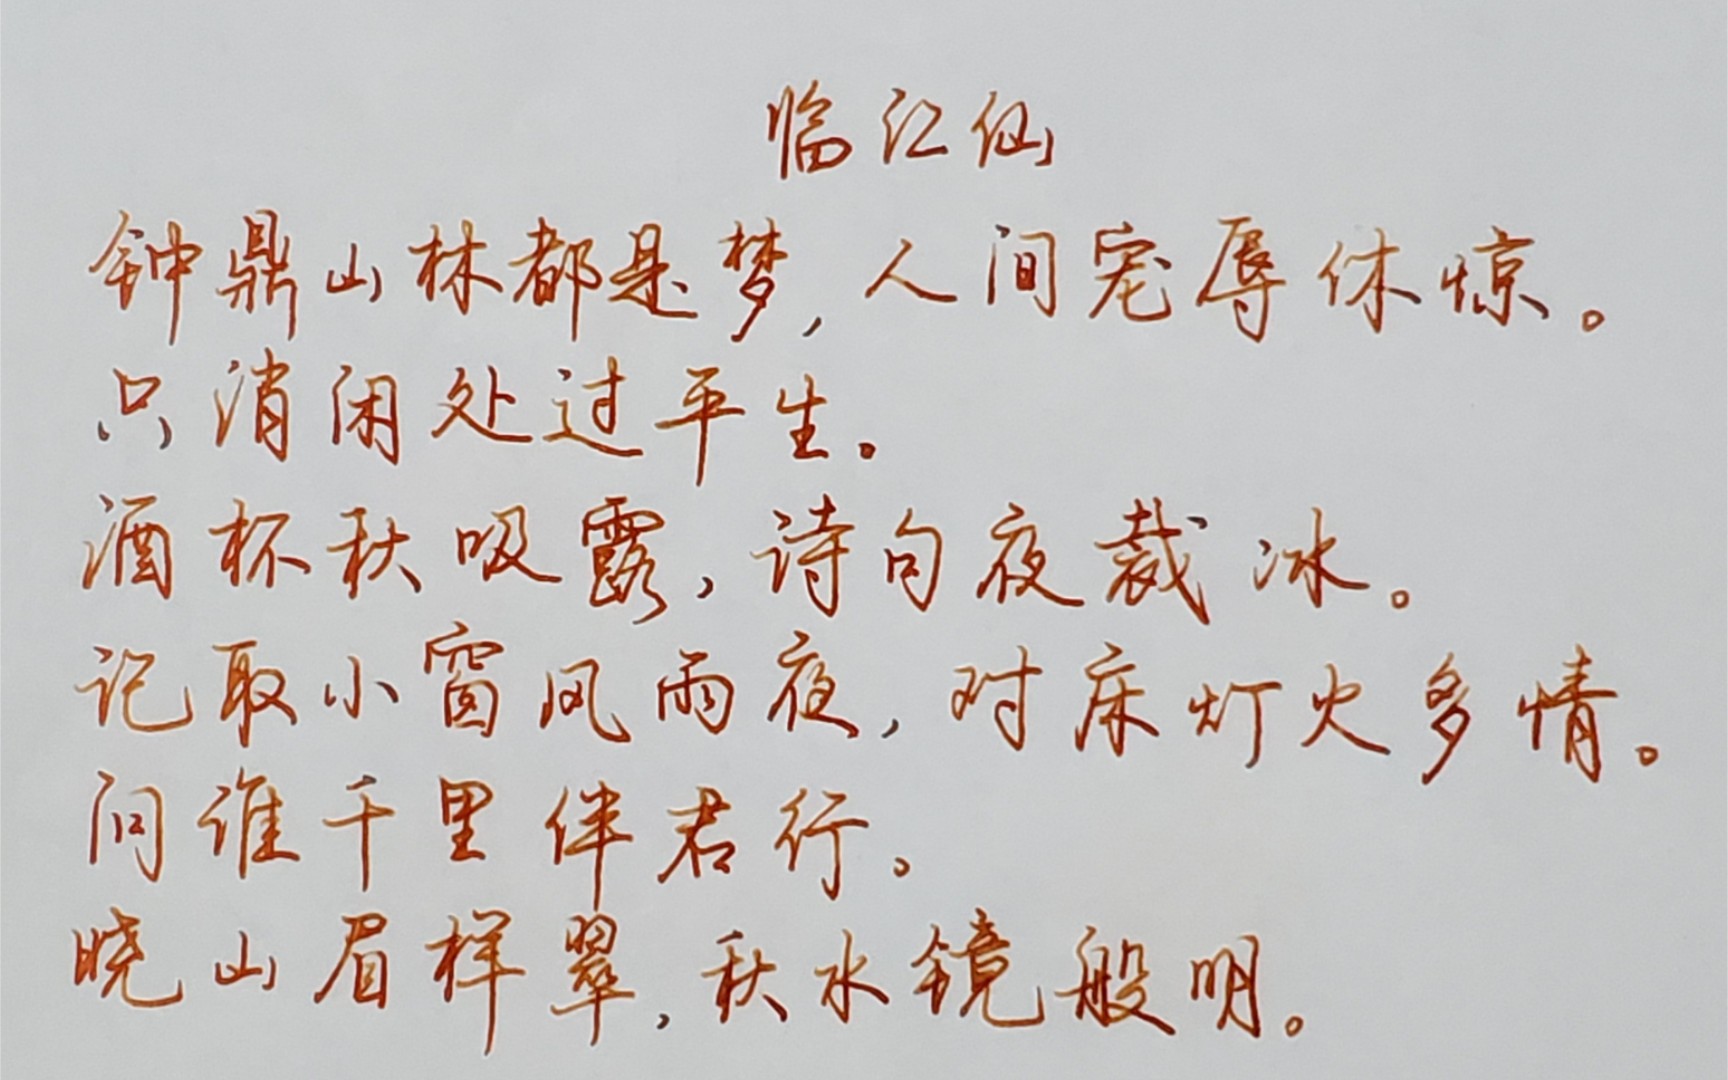 临江仙
钟鼎山林都是梦，人间宠辱休惊。
只消闲处过平生。
酒杯秋吸露，诗句夜裁冰。
记取小窗风雨夜，对床灯火多情。
问谁千里伴君行。
晓山眉样翠，秋水镜般明。